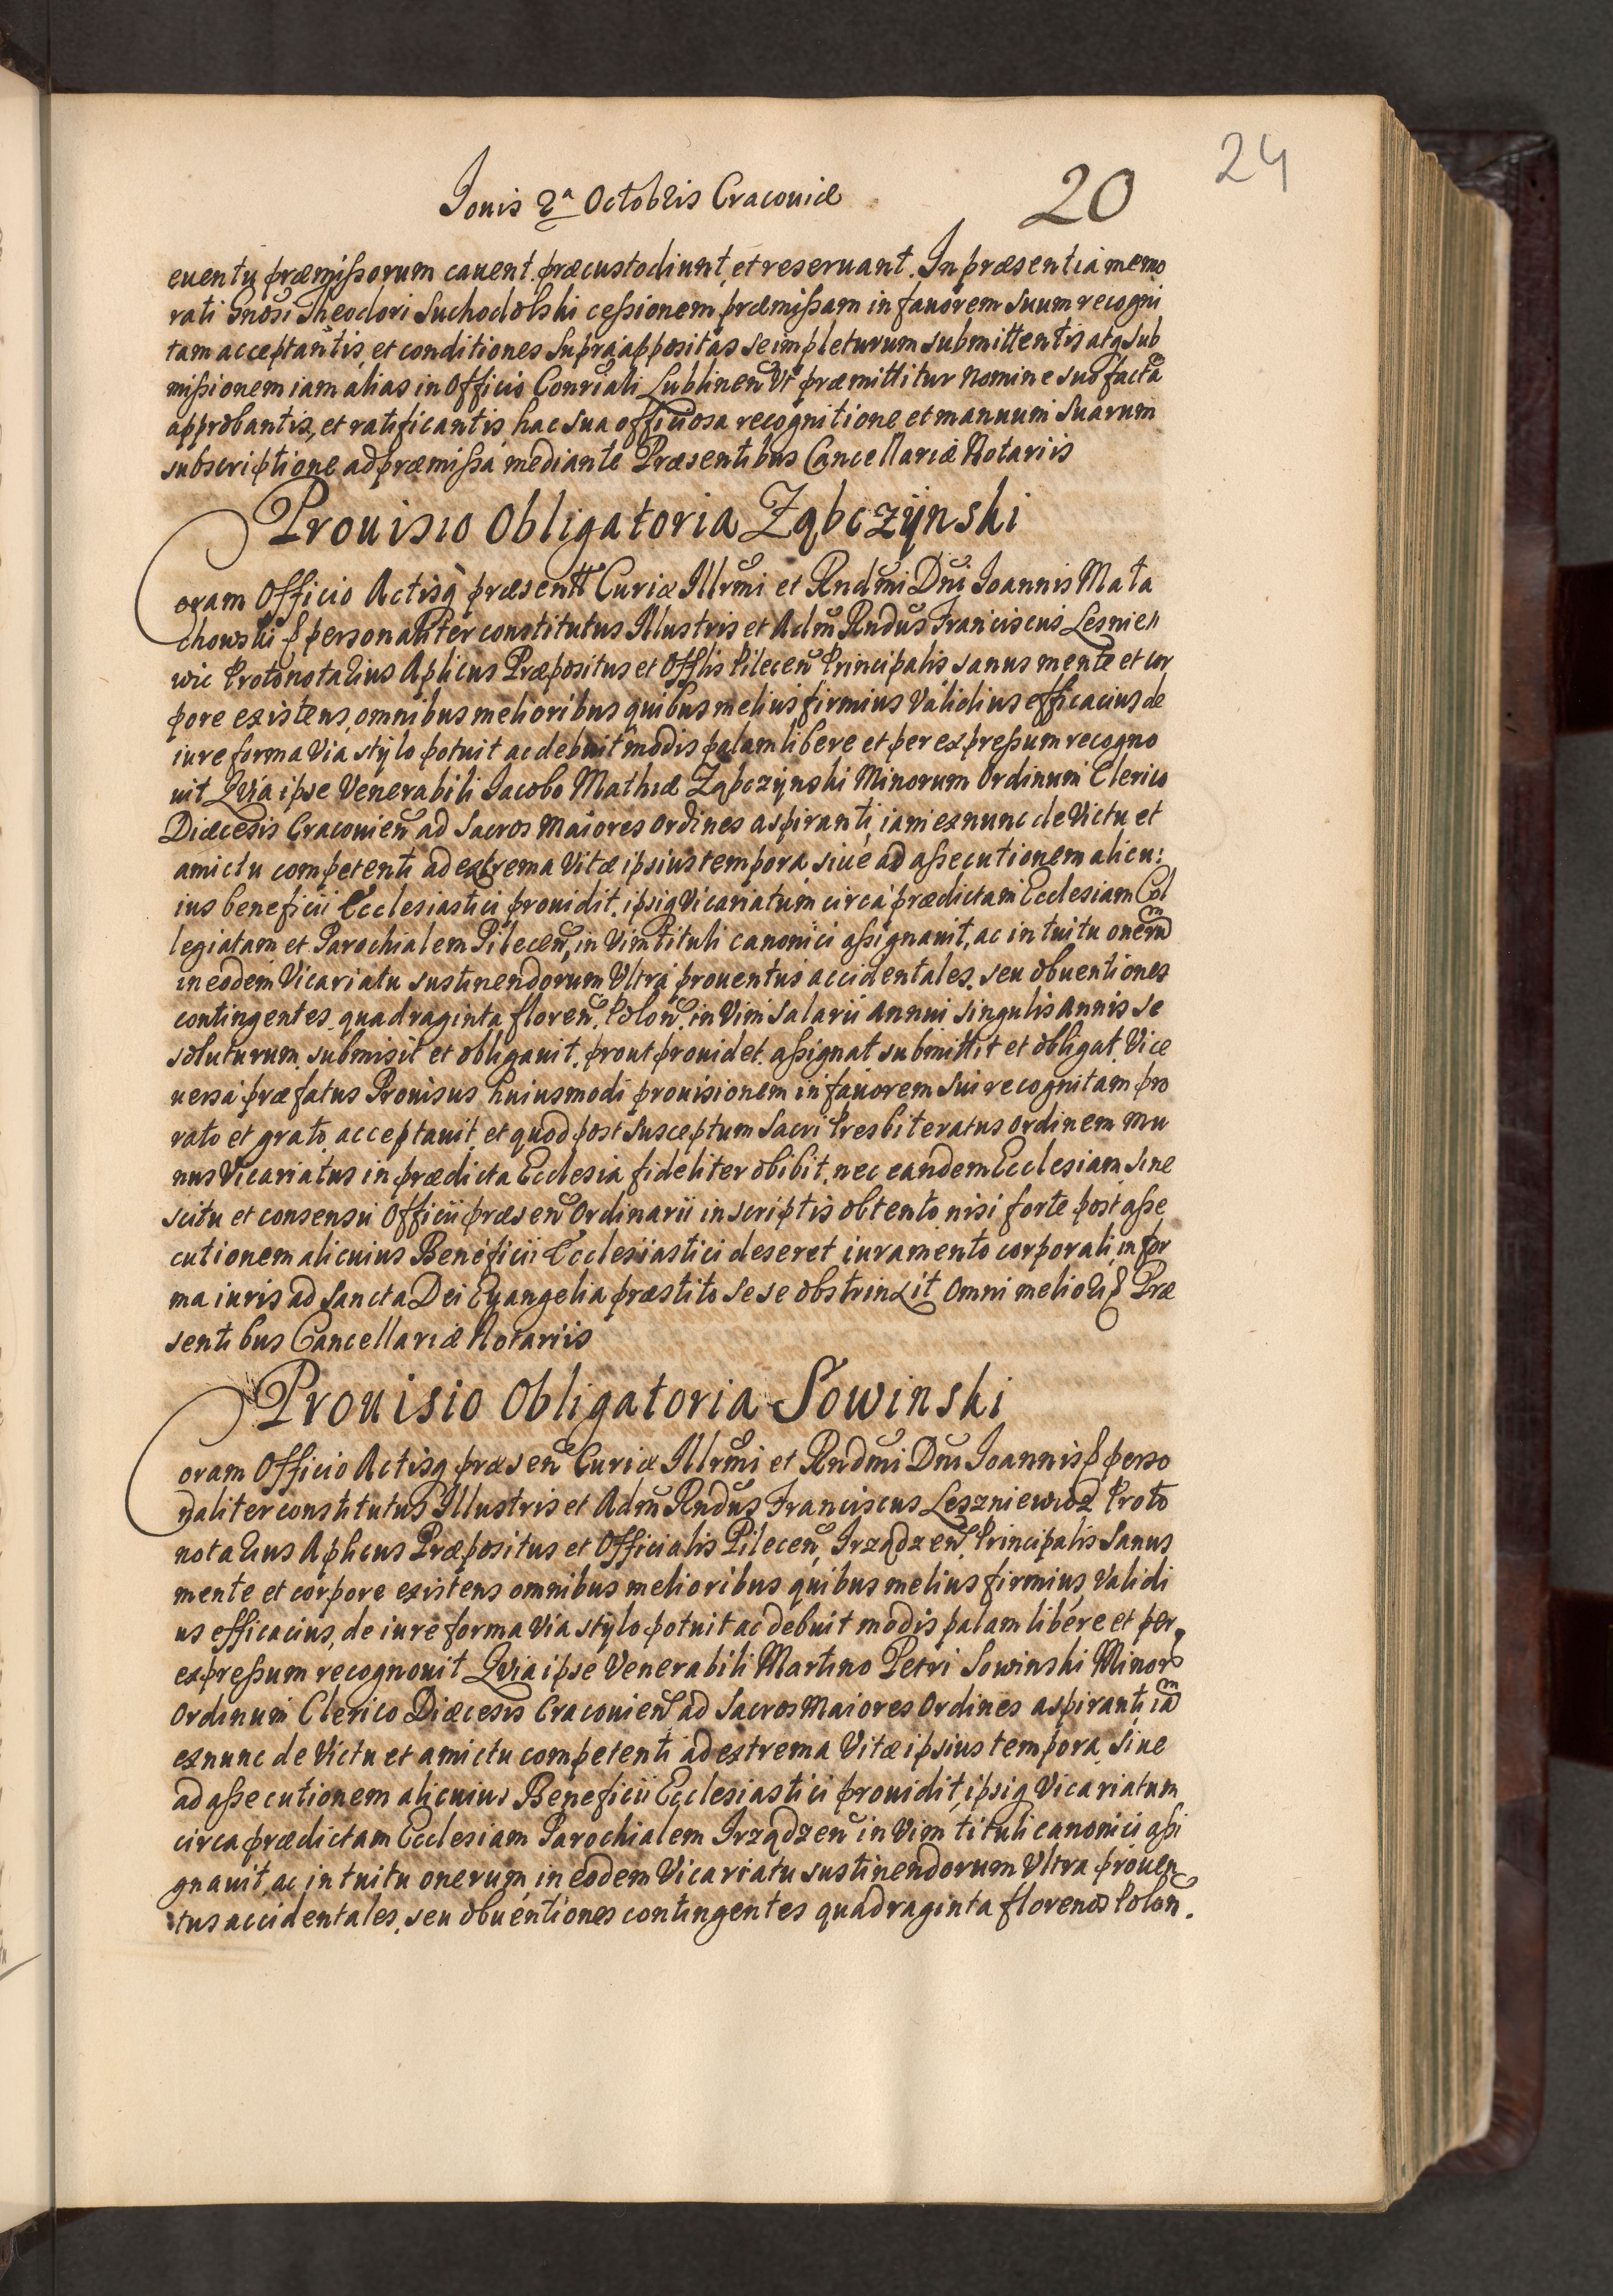 24
Jouis 2ª Octobris Cracouiæ 20
euentu præmissorum cauent præcustodiunt, et reseruant. In præsentia memo
rati Gnosi Theodori Suchodolski cessionem præmissam in fauorem suum recogni
tam acceptantis, et conditiones supra appositas se impleturum submittentis atq sub
missionem iam alias in Officio Consiali Lublinen Vt præmittitur nomine suo facta
approbantis, et ratificantis hac sua officiosa recognitione et manuum suarum
subscriptione ad præmissa mediante Præsentibus Cancellariæ Notariis
Prouisio Obligatoria Ząbczÿnski
Coram Officio Actisq præsentt Curiæ Illrmi et Rndmi Dni Joannis Mała
chowski & personaliter constitutus Illustris et Adm Rndus Franciscus Lesnie
wic Protonotarius Aplicus Præpositus et Offlis Pilecen Principalis sanus mente et cor
pore existens, omnibus melioribus quibus melius firmius Validius efficacius de
iure forma Via, stylo potuit ac debuit modis palam libere et per expressum recogno
uit Quia ipse Venerabili Jacobo Mathiæ Ząbczÿnski Minorum Ordinum Clerico
Diæcesis Cracouien ad Sacros Maiores ordines aspiranti, iam exnunc de Victu et
amictu competenti ad extrema Vitæ ipsius tempora, siue ad assecutionem alicu:
ius beneficii Ecclesiastici prouidit. ipsiq Vicariatum circa prædictam Ecclesiam Col
legiatam et Parochialem Pilecen, in Vim tituli canonici assignauit, ac intuitu onerum
in eodem Vicariatu sustinendorum Vltra prouentus accidentales. seu obuentiones
contingentes quadraginta floren. Polon. in Vim salarii annui singulis annis se
soluturum submisit et obligauit. prout prouidet assignat submittit et obligat. Vice
uersa præfatus Prouisus huiusmodi prouisionem in fauorem sui recognitam pro
rato et grato acceptauit et quod post susceptum sacri Presbiteratus ordinem mu
nus Vicariatus in prædicta Ecclesia fideliter obibit. nec eandem Ecclesiam sine
scitu et consensu Officii præsen Ordinarii in scriptis obtento nisi forte post asse
cutionem alicuius Beneficii Ecclesiastici deseret iuramento corporali in for
ma iuris ad Sancta Dei Euangelia præstito sese obstrinxit Omni meliori & Præ
sentibus Cancellariæ Notariis
Prouisio Obligatoria Sowinski
Coram Officio Actisq præsen Curiæ Illrmi et Rndmi Dni Joannis & perso
naliter constitutus Illustris et Adm Rndus Franciscus Leszniewicz Proto
notarius Aplicus Præpositus et Officialis Pilecen, Irządzen. Principalis Sanus
mente et corpore existens omnibus melioribus quibus melius firmius, Validi
us efficacius, de iure forma Via stylo potuit ac debuit modis palam libere et per
expressum recognouit Quia ipse Venerabili Martino Petri Sowinski Minor
Ordinum Clerico Diæcesis Cracouien ad Sacros Maiores Ordines aspiranti iam
exnunc de Victu et amictu competenti ad extrema Vitæ ipsius tempora, siue
ad assecutionem alicuius Beneficii Ecclesiastici prouidit, ipsiq Vicariatum
circa prædictam Ecclesiam Parochialem Irządzen in Vim tituli canonici assi
gnauit, ac intuitu onerum in eodem Vicariatu sustinendorum Vltra prouen
tus accidentales, seu obuentiones contingentes quadraginta florenos Polon.